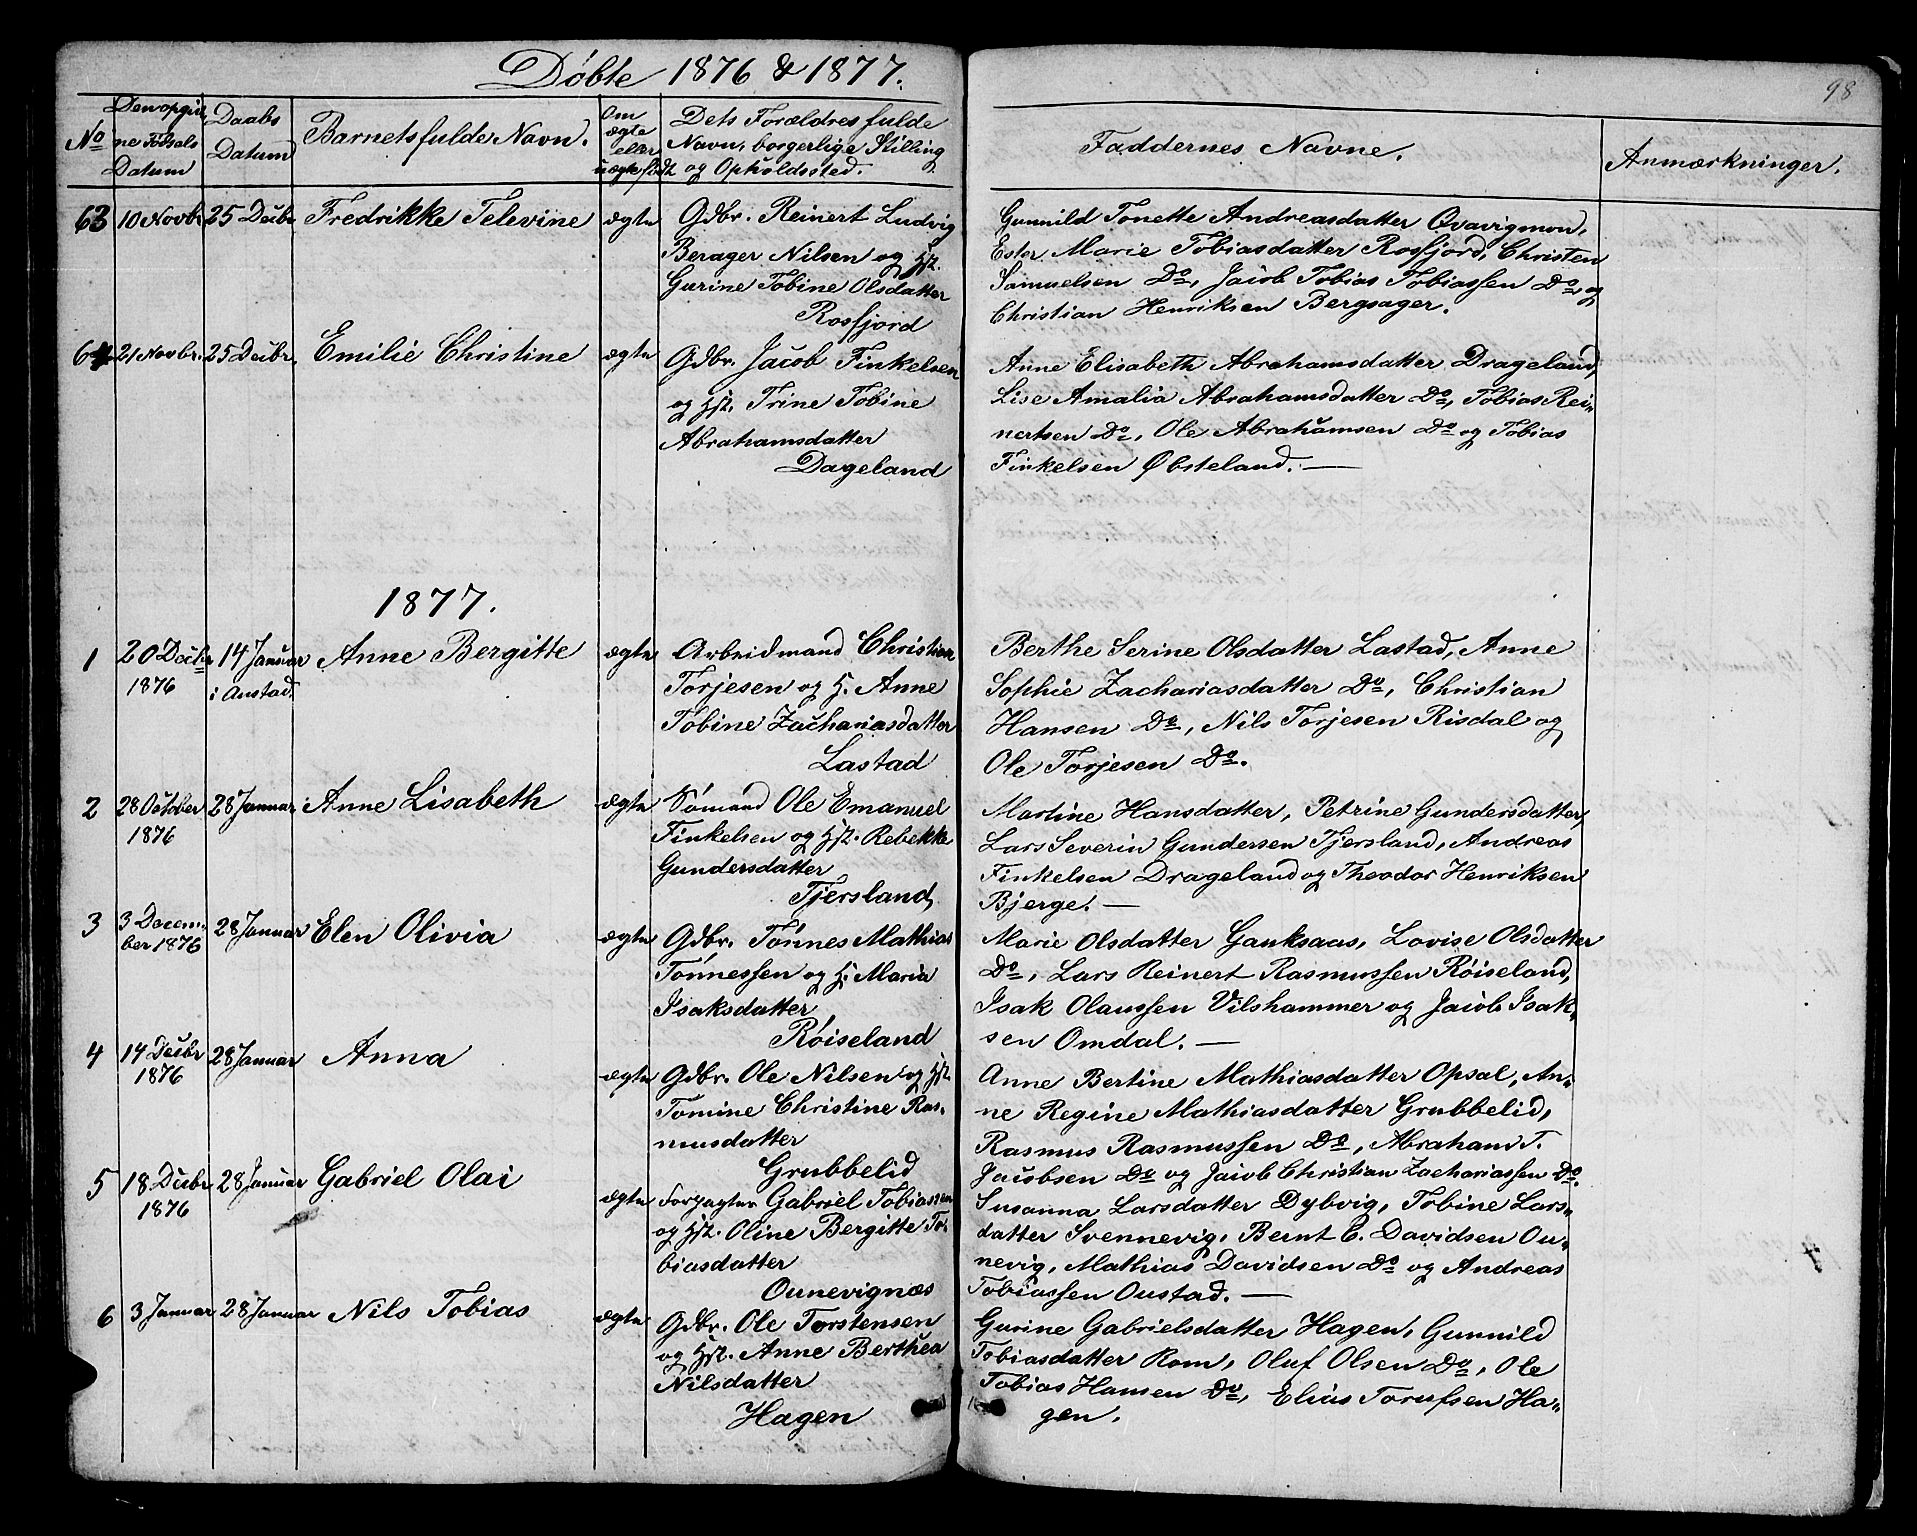 Döbte 1876 & 1877.
98
No
Den opgivne Födsels Datum
Daabs Datum
Barnets fulde Navn.
Om ægte eller uægte födt
Dets Forældres fulde
Navn, borgerlige Stilling
og Opholdssted.
Faddernes Navne.
Anmærkninger.
63 10 Novbr 25 Decbr Fredrikke Televine ægte
Gdbr. Reinert Ludvig
Berager Nilsen og Hst.
Gurine Tobine Olsdatter
Rosfjord
Gunnild Tonette Andreasdatter Qvavigmon,
Ester Marie Tobiasdatter Rosfjord, Christen
Samuelsen Do, Jacob Tobias Tobiassen Do, og
Christian Henriksen Bergsager.
64 21 Novbr. 25 Decbr. Emilie Christine ægte
Gdbr. Jacob Finkelsen
og Hst. Trine Tobine
Abrahamsdatter
Dageland
Anne Elisabeth Abrahamsdatter Drageland,
Lise Amalia Abrahamsdatter Do, Tobias Rei-
nertsen Do, Ole Abrahamsen Do og Tobias
Finkelsen Øbsteland. —
1877.
1 20 Decbr 1876 14 Januar i Austad. Anne Bergitte ægte
Arbeidmand Christian
Torjesen og H. Anne
Tobine Zachariasdatter
Lastad
Berthe Serine Olsdatter Lastad, Anne
Sophie Zachariasdatter Do, Christian
Hansen Do, Nils Torjesen Risdal og
Ole Torjesen Do.
2 28 October 1876 28 Januar Anne Lisabeth ægte
Sömand Ole Emanuel
Finkelsen og Hst. Rebekke
Gundersdatter
Tjersland,
Martine Hansdatter, Petrine Gundersdatter,
Lars Severin Gundersen Tjersland, Andreas
Finkelsen Drageland og Theodor Henriksen
Bjerge. —
3 3 Decem-ber 1876 28 Januar Elen Olivia ægte
Gdbr. Tönnes Mathias
Tönnessen og H. Maria
Isaksdatter
Röiseland
Marie Olsdatter Gauksaas, Lovise Olsdatter
Do, Lars Reinert Rasmussen Röiseland,
Isak Olaussen Vilshammer og Jacob Isak-
sen Omdal. —
4 14 Decbr 1876 28 Januar Anna ægte
Gdbr. Ole Nilsen og Hst
Tomine Christine Ras-
musdatter
Grubbelid
Anne Bertine Mathiasdatter Opsal, An-
ne Regine Mathiasdatter Grubbelid,
Rasmus Rasmussen Do, Abraham T.
Jacobsen Do og Jacob Christian Zachariassen Do.
5 18 Decbr 1876 28 Januar Gabriel Olai ægte
Forpagter Gabriel Tobiassen
og Hst. Oline Bergitte To-
biasdatter
Ounevignæs
Susanna Larsdatter Dybvig, Tobine Lars-
datter Svennevig, Bernt C. Davidsen Ou-
nevig, Mathias Davidsen Do og Andreas
Tobiassen Oustad. —
6 3 Januar 28 Januar Nils Tobias ægte
Gdbr. Ole Torstensen
og Hst. Anne Berthea
Nilsdatter
Hagen
Gurine Gabrielsdatter Hagen, Gunnild
Tobiasdatter Rom, Oluf Olsen Do, Ole
Tobias Hansen Do, Elias Torufsen Ha-
gen.